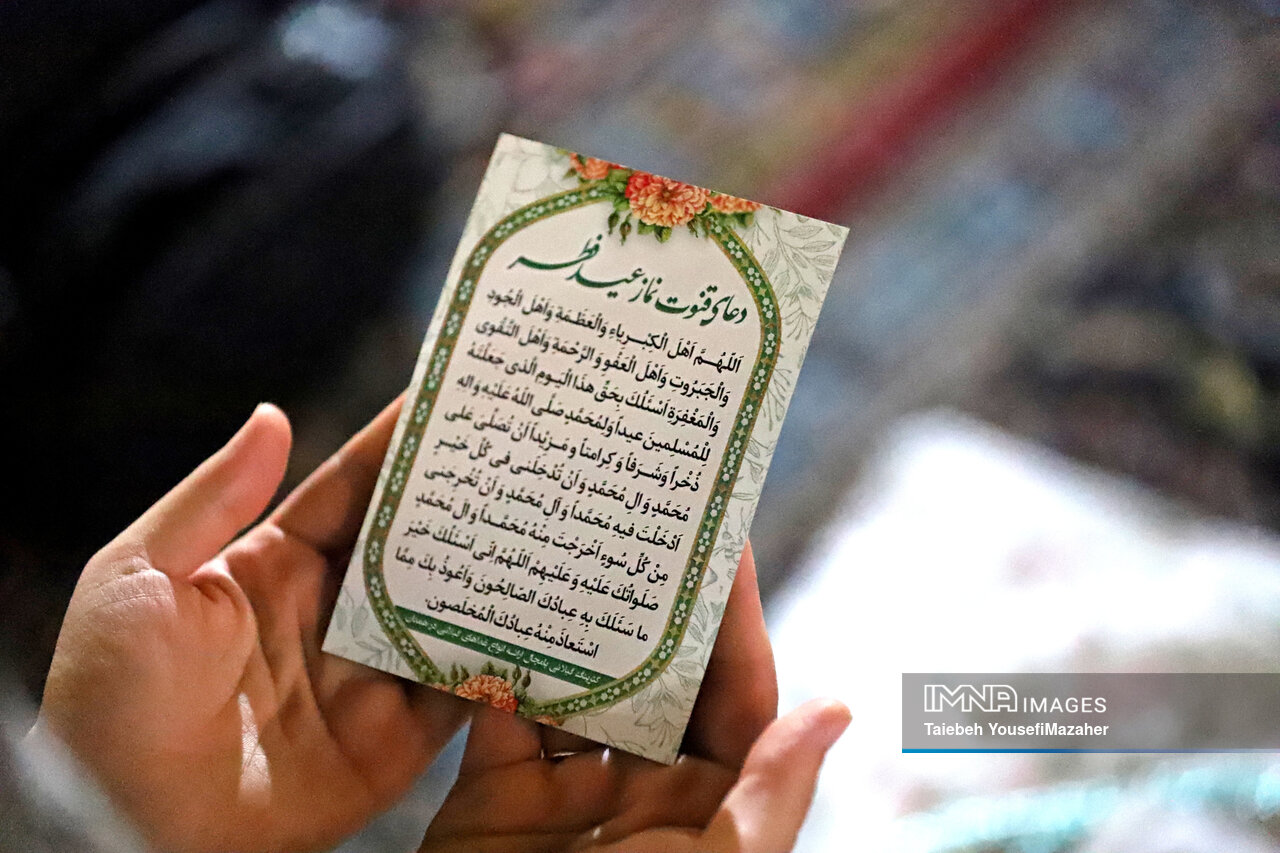 دعای قنوت نماز عید فطر
اَللّهُمَّ اَهْلَ الْكِبْرِیاءِ وَالْعَظَمَةِ وَاَهْلَ الْجُودِ
وَالْجَبَرُوتِ وَاَهْلَ الْعَفْوِ وَالرَّحْمَةِ وَاَهْلَ التَّقْوى
وَالْمَغْفِرَةِ اَسْئَلُكَ بِحَقِّ هذَا الْیَومِ الَّذى جَعَلْتَهُ
لِلْمُسْلِمینَ عیداً وَلِمُحَمَّدٍ صَلَّى اللهُ عَلَیْهِ وَالِهِ
ذُخْراً وَشَرَفاً وَ كِرامَتاً وَ مَزیْداً اَنْ تُصَلِّىَ عَلى
مُحَمَّدٍ وَ الِ مُحَمَّدٍ وَ اَنْ تُدْخِلَنى فى كُلِّ خَیْرٍ
اَدْخَلْتَ فیهِ مُحَمَّداً وَ آلِ مُحَمَّدٍ وَ اَنْ تُخْرِجَنى
مِنْ كُلِّ سُوءٍ اَخْرَجْتَ مِنْهُ مُحَمَّداً وَ الَ مُحَمَّدٍ
صَلَواتُكَ عَلَیْهِ وَ عَلَیْهِمْ اَللّهُمَّ اِنّى اَسْئَلُكَ خَیْرَ
ما سَئَلَكَ بِهِ عِبادُكَ الصّالِحُونَ وَ اَعُوذُ بِكَ مِمَّا
اسْتَعاذَ مِنْهُ عِبادُكَ الْمُخلَصون.
کترینگ گیلانی بامجال ارائه انواع غذاهای گیلانی در همدان
IMNA IMAGES
Taiebeh YousefiMazaher